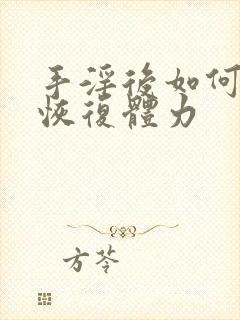 手淫後如何
恢復體力
方苓